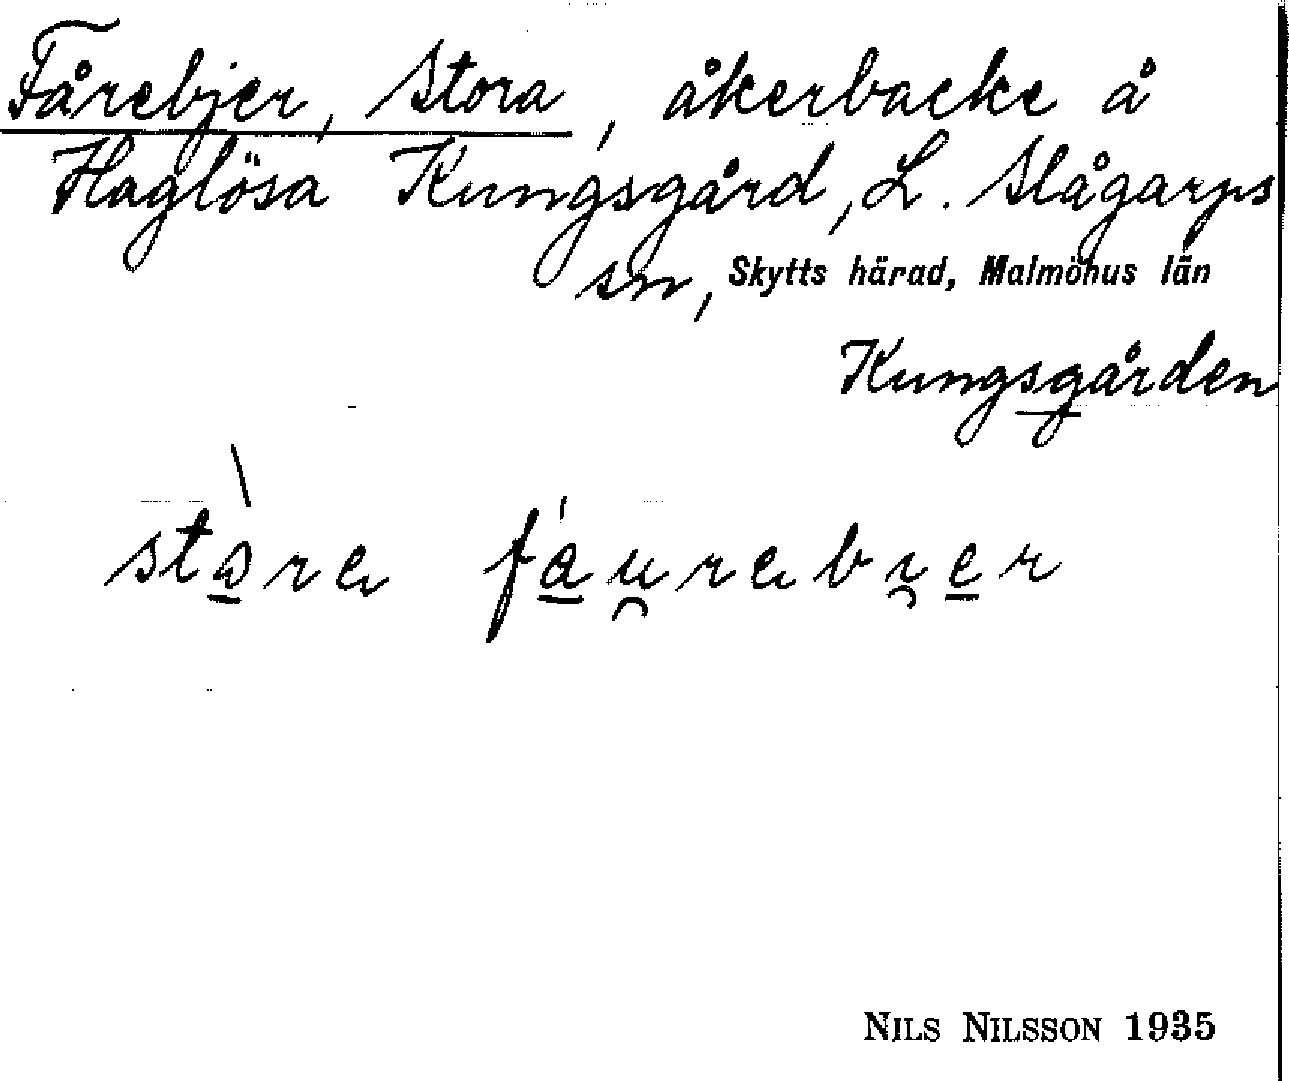 Fårebjer, Stora, åkerbacke å
Haglösa Kungsgård, L. Slågarps
sn, Skytts härad, Malmöhus län
Kungsgården
stòra fáu̯rabi̯er
NILS NILSSON 1935